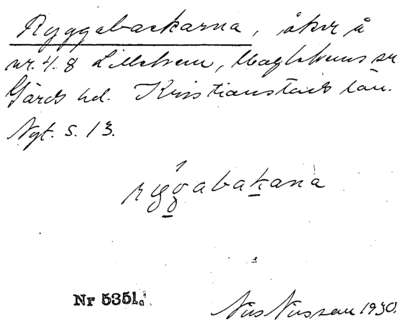 Ryggabackarna, åker å
nr. 4. 8 Lillehem, Maglehems sn
Gärds hd. Kristianstads län.
Nyt. S. 13.
rýggabakana
Nr 5351.
Nils Nilsson 1930.